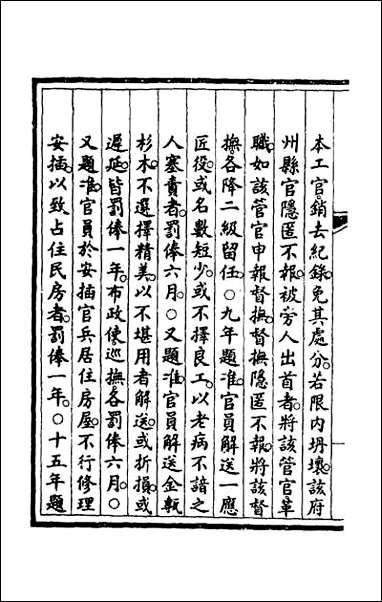 本工官銷去紀錄免其處分若限内坍壞該府
州縣官隱匿不報被旁人出首者將該管官革
職如該管官申報督撫督撫隱匿不報將該督
撫各降二級留任○九年題准官員解送一應
匠役或名數短少或不擇良工以老病不諳之
人塞責者罰俸六月○又題准官員解送金甎
杉木不選擇精美以不堪用者解送或折損或
遲延皆罰俸一年布政使巡撫各罰俸六月○
又題准官員於安插官兵居住房屋不行修理
安插以致占住民房者罰俸一年○十五年題